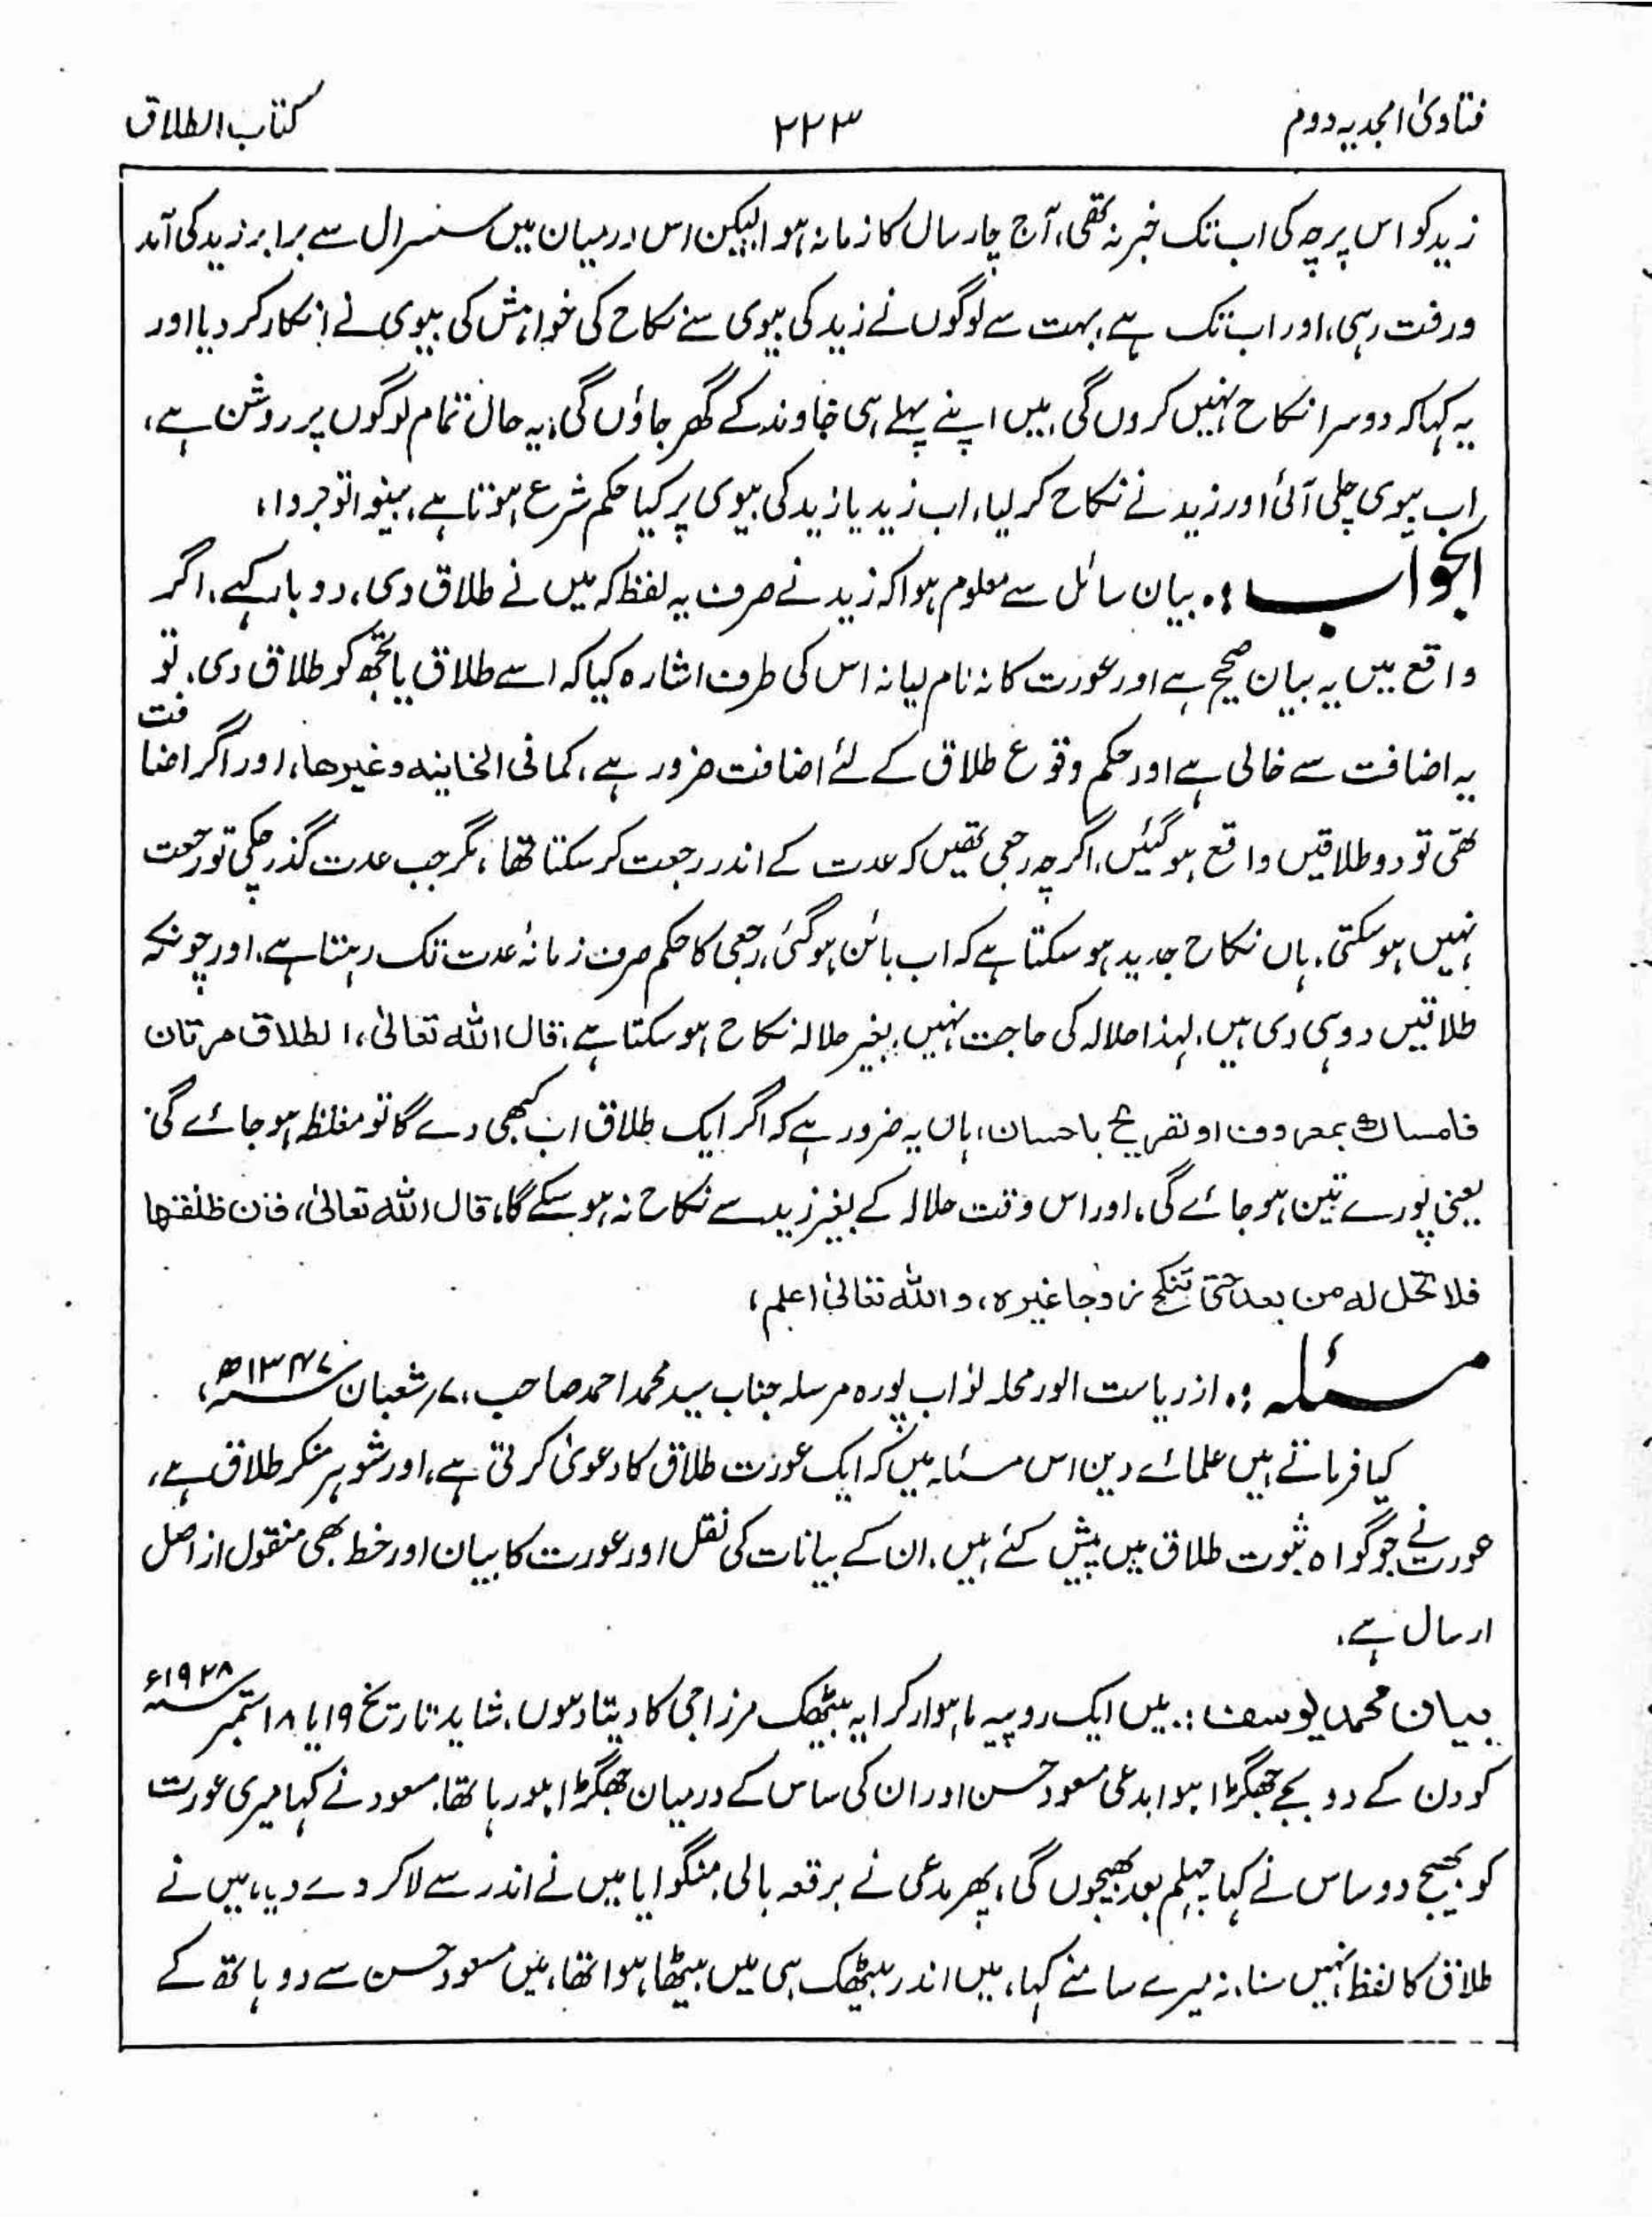 فتاویٰ امجدیہ دوم ۲۲۳ کتاب الطلاق
زید کو اس پرچہ کی اب تک خبر نہ تھی، آج چار سال کا زمانہ ہوا لیکن اس درمیان میں سسرال سے برابر زید کی آمد
ورفت رہی، اور اب تک ہے، بہت سے لوگوں نے زید کی بیوی سے نکاح کی خواہش کی بیوی نے انکار کر دیا اور
یہ کہا کہ دوسرا نکاح نہیں کروں گی، میں اپنے پہلے ہی خاوند کے گھر جاؤں گی، یہ حال تمام لوگوں پر روشن ہے،
اب بیوی چلی آئی اور زید نے نکاح کر لیا، اب زید یا زید کی بیوی پر کیا حکم شرع ہوتا ہے، بینوا توجروا،
الجواب :۔ بیان سائل سے معلوم ہوا کہ زید نے صرف یہ لفظ کہ میں نے طلاق دی، دو بار کہے، اگر
واقع میں یہ بیان صحیح ہے اور عورت کا نہ نام لیا نہ اس کی طرف اشارہ کیا کہ اسے طلاق یا تجھ کو طلاق دی، تو
یہ اضافت سے خالی ہے اور حکم وقوع طلاق کے لئے اضافت ضرور ہے، کما فی الخانیہ وغیرھا، اور اگر اضافت
تھی تو دو طلاقیں واقع ہوگئیں، اگرچہ رجعی تھیں کہ عدت کے اندر رجعت کر سکتا تھا، مگر جب عدت گذر چکی تو رجعت
نہیں ہوسکتی، ہاں نکاح جدید ہو سکتا ہے کہ اب بائن ہوگئی، رجعی کا حکم صرف زمانۂ عدت تک رہتا ہے، اور چونکہ
طلاقیں دو ہی دی ہیں، لہذا حلالہ کی حاجت نہیں، بغیر حلالہ نکاح ہو سکتا ہے، قال اللہ تعالیٰ، الطلاق مرتان
فامساك بمعروف او تفریح باحسان، ہاں یہ ضرور ہے کہ اگر ایک طلاق اب کبھی دے گا تو مغلظہ ہو جائے گی
یعنی پورے تین ہو جائے گی، اور اس وقت حلالہ کے بغیر زید سے نکاح نہ ہو سکے گا، قال اللہ تعالیٰ، فان طلقھا
فلا تحل له من بعد حتی تنکح زوجا غیره، و اللہ تعالیٰ اعلم،
مسئلہ :۔ از ریاست الور محلہ نواب پورہ مرسلہ جناب سید محمد احمد صاحب، ۷؍ شعبان سنہ ۱۳۴۷ھ،
کیا فرماتے ہیں علمائے دین اس مسئلہ میں کہ ایک عورت طلاق کا دعویٰ کرتی ہے، اور شوہر منکر طلاق ہے،
عورت نے جو گواہ ثبوت طلاق میں پیش کئے ہیں، ان کے بیانات کی نقل اور عورت کا بیان اور خط بھی منقول از اصل
ارسال ہے،
بیان محمد یوسف :۔ میں ایک روپیہ ماہوار کرایہ بیٹھک مرزا جی کا دیتا ہوں، شاید تاریخ ۱۹ یا ۱۸ ستمبر سنہ ۱۹۲۸ء
کو دن کے دو بجے جھگڑا ہوا مدعی مسعود حسن اور ان کی ساس کے درمیان جھگڑا ہو رہا تھا، مسعود نے کہا میری عورت
کو بھیج دو ساس نے کہا چہلم بعد بھیجوں گی، پھر مدعی نے برقعہ بالی منگوایا میں نے اندر سے لا کر دے دیا، میں نے
طلاق کا لفظ نہیں سنا، نہ میرے سامنے کہا، میں اندر بیٹھک ہی میں بیٹھا ہوا تھا، میں مسعود حسن سے دو ہاتھ کے